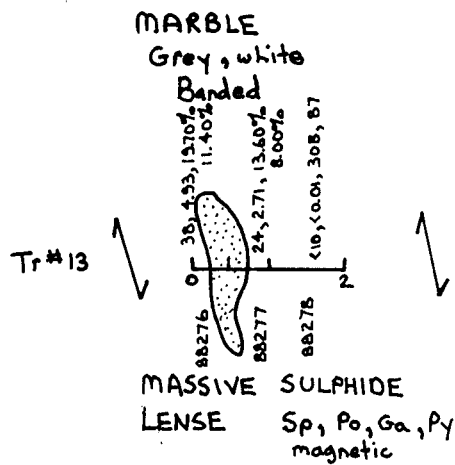 MARBLE
Grey, white
Banded
38, 4.93, 19.70%
11.40%
24, 2.71, 13.60%
8.00%
<10, <0.01, 308, 87
Tr#13
0
2
88276
88277
88278
MASSIVE SULPHIDE
LENSE Sp, Po, Ga, Py
magnetic